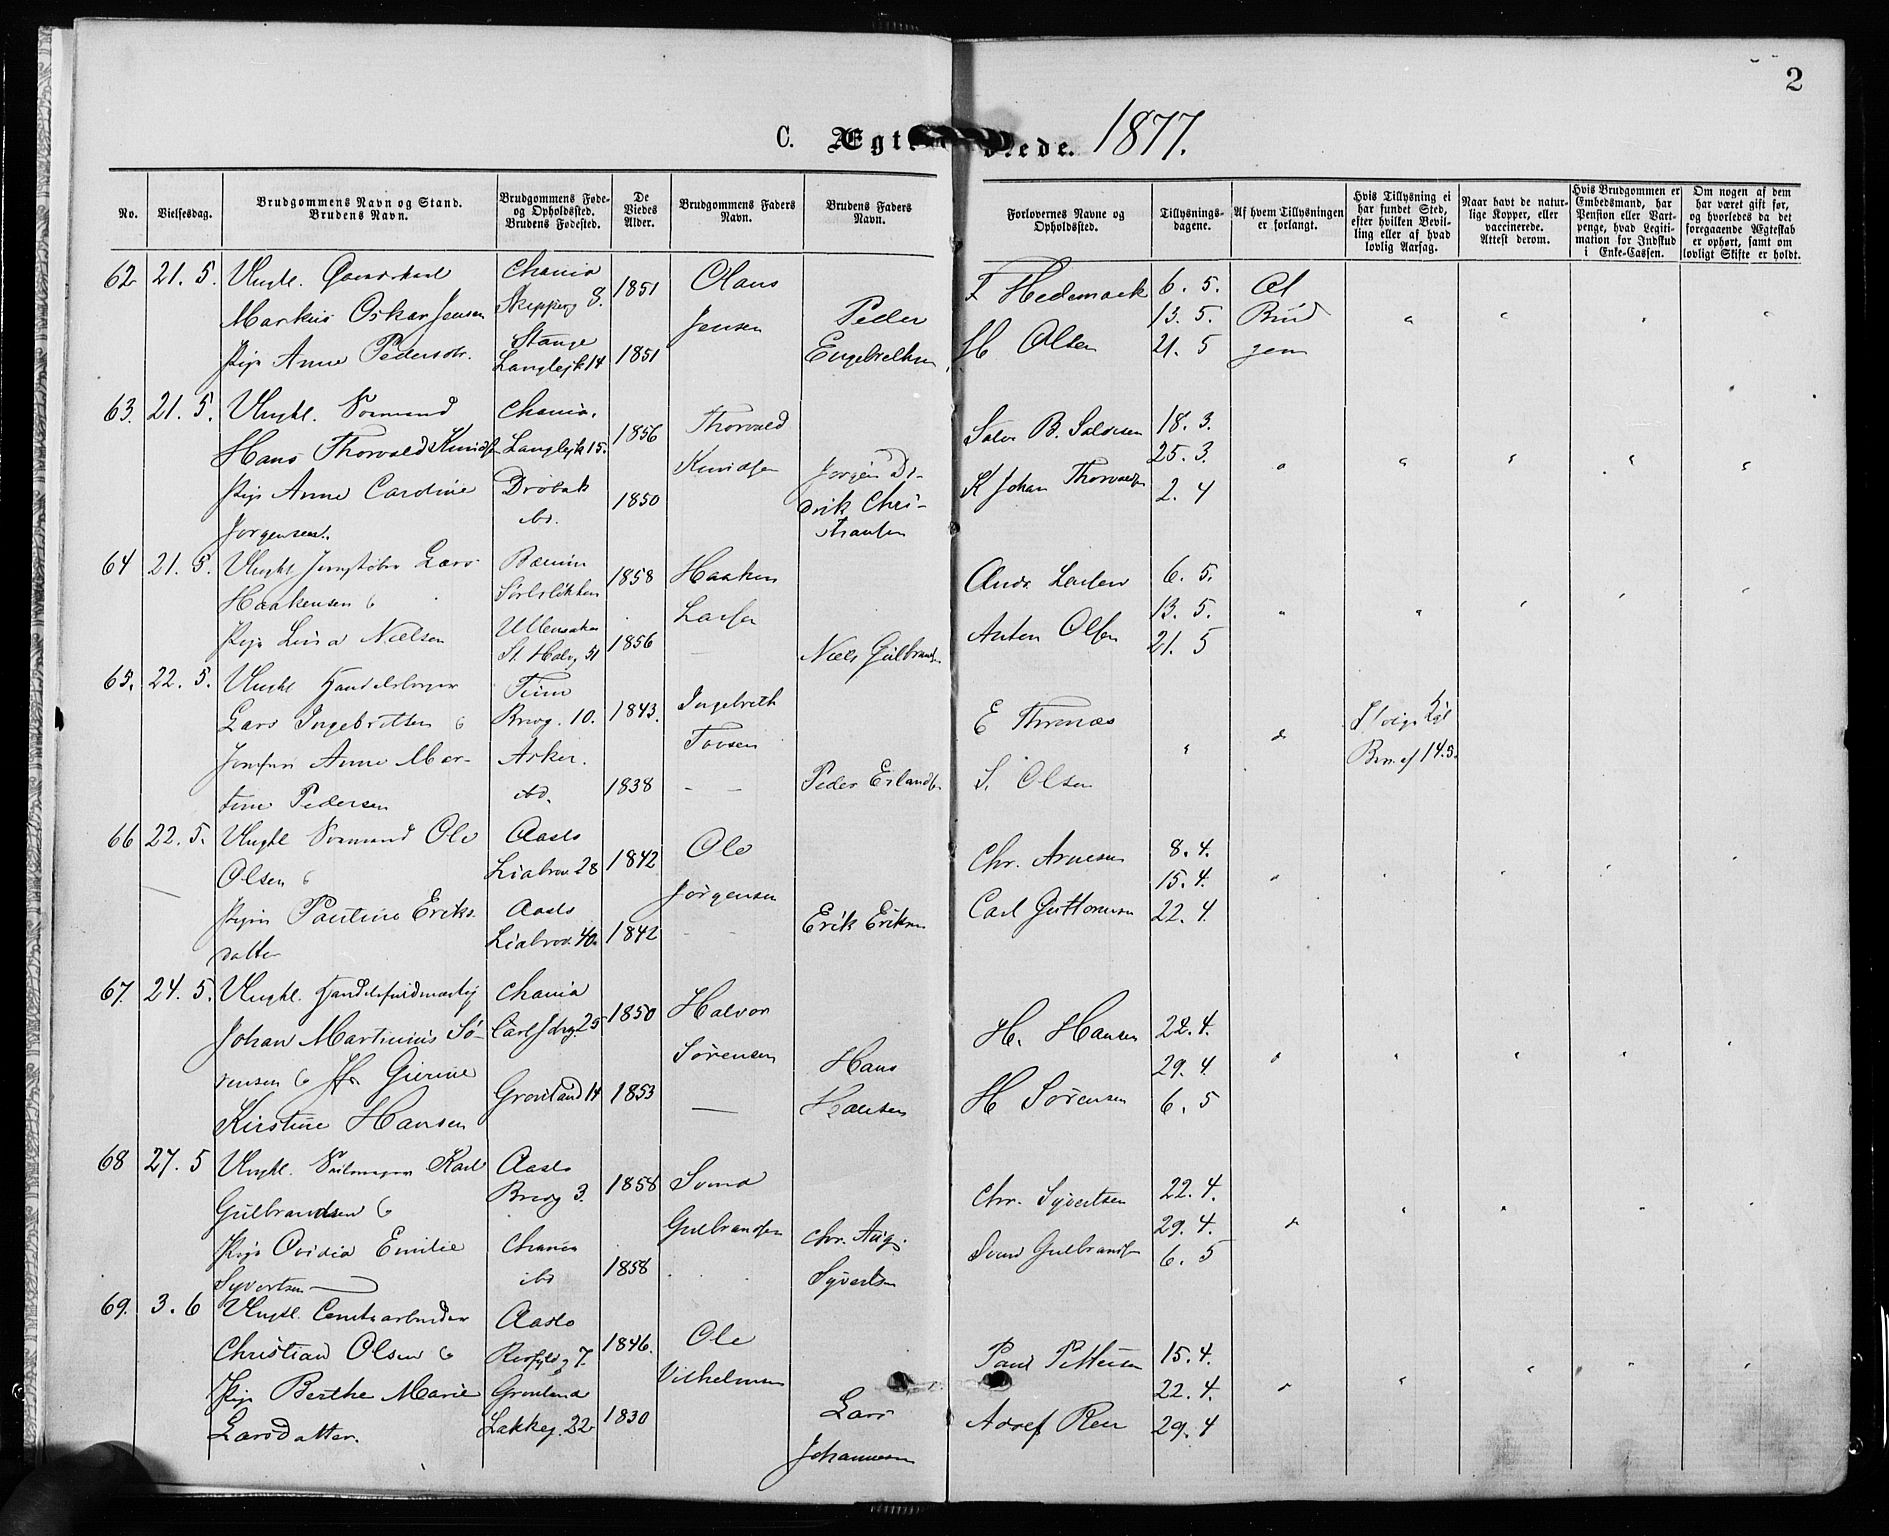 2
C. Ægt
1877.
No.
Vielsesdag.
Brudgommens Navn og Stand.
Brudens Navn.
Brudgommens Føde-
og Opholdssted.
Brudens Fødested.
De
Viedes
Alder.
Brudgommens Faders
Navn.
Brudens Faders
Navn.
Forlovernes Navne og
Opholdssted.
Tillysnings-
dagene.
Af hvem Tillysningen
er forlangt.
Hvis Tillysning ei
har fundet Sted,
efter hvilken Bevil-
ling eller af hvad
lovlig Aarsag.
Naar havt de natur-
lige Kopper, eller
vaccinerede.
Attest derom.
Hvis Brudgommen er
Embedsmand, har
Pension eller Vart-
penge, hvad Legiti-
mation for Indskud
i Enke-Cassen.
Om nogen af dem
har været gift før,
og hvorledes da det
foregaaende Ægteskab
er ophørt, samt om
lovligt Skifte er holdt.
62 21. 5. Ungkl.
Chania 1851 Olaus
Markus Oskar Jensen
Jensen Peder
Pige Anne Pedersdr. Stange
Langlejk 14 1851 Engebrethsen
F Hedemark 6. 5. Af
13. 5. Brud
H Olsen 21. 5 gom
63. 21. 5. Ungkl. Sømand Chania.
Hans Thorvald Knudsen Langlejk 15. 1856 Thorvald
Knudsen Jørgen Di-
Pige Anne Caroline Drøbak 1850 drik Chri-
Jørgensen. ibd. stiansen
B. Salvesen 18. 3.
25. 3.
K Johan Thorvaldsen 2. 4
64 21. 5. Ungkl Lars
Haakensen 1858 Haaken
Larsen
Pige Lina Nielsen Ullensaker
St. Halv. 51 1856 Niels Gulbrandsen
Andr Larsen 6. 5.
13. 5.
Anton Olsen 21. 5
65. 22. 5. Ungkl Handelsborger
Lars Ingebretsen 10. 1843. Ingebreth
Jomfru Anne Mar- Asker.
tine Pedersen ibd. 1838 Peder Erlandsen
E Thrones
S. Olsen
14.5.
66 22. 5. Ungkl Sømand Ole Aaslo
Olsen Liabrov. 28 1842 Ole
Jørgensen
Pigen Pauline Eriks- Aaslo
datter Liabrov. 40a 1842 Erik Eriksen
Chr. Arnesen 8. 4.
15. 4.
Carl Guttormsen 22. 4.
67. 24. 5. Ungkl. Chania
Johan Martinius Sø- Carl J dvg. 25 1850 Halvor
rensen Jfr Gurine Sørensen Hans
Kirstine Hansen Grønland 14 1853 Hansen
H. Hansen 22. 4.
29. 4.
H Sørensen 6. 5
68 27. 5 Ungkl. Seilmager Karl Aaslo
Gulbrandsen 3. 1858 Svend
Gulbrandsen Chr. Aug.
Pige Ovidia Emilie Chania
Syvertsen ibd 1858 Syvertsen
Chr. Syvertsen 22. 4.
29. 4.
Svend Gulbrandsen 6. 5
69. 3. 6 Ungkl. Aaslo
Christian Olsen 7. 1846. Ole
Vilhelmsen
Pige Berthe Marie Grønland
Larsdatter. Lakkeg. 22 1830 Lars
Johannesen
Paul Pettersen 15. 4.
22. 4.
29. 4